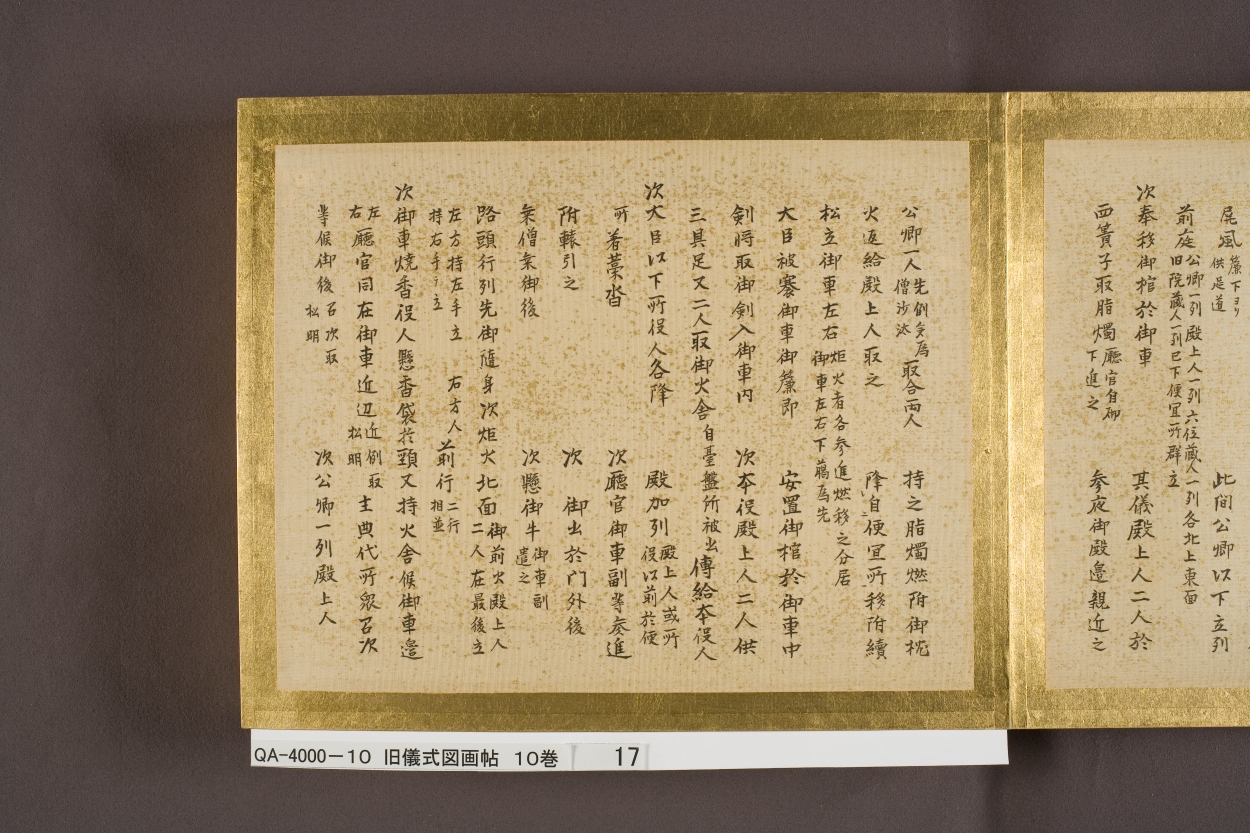 屏風簾下ヨリ供莚道 此間公卿以下立列
前庭公卿一列殿上人一列六位蔵人一列各北上東面旧院蔵人一列已下便宜所群立
次奉移御棺於御車 其儀殿上人二人於
西簀子取脂燭廳官自砌下進之 参夜御殿邉親近之
公卿一人先例多為僧沙汰取合両人 持之脂燭燃附御枕
火返給殿上人取之 降自便冝所移附續
松立御車左右炬火者各参進燃移之分居御車左右下﨟為先
大臣被褰御車御簾即 安置御棺於御車中
剣将取御剣入御車内 次本役殿上人二人供
三具足又二人取御火舎自臺盤所被出傳給本役人
次大臣以下所役人各降 殿加列殿上人或所役以前於便
所着藁沓 次廳官御車副等参進
附轅引之 次 御出於門外後
乗僧乗御後 次懸御牛御車副遣之
路頭行列先御随身次炬火北面御前火殿上人二人在最後立
左方持左手立 右方人持右手ニ立前行二行相並
次御車焼香役人懸香袋於頸又持火舎候御車邉
左右廳官同在御車近辺近例取松明主典代所衆召次
等候御後召次取松明 次公卿一列殿上人
QA-4000-10 旧儀式図画帖 10巻 17